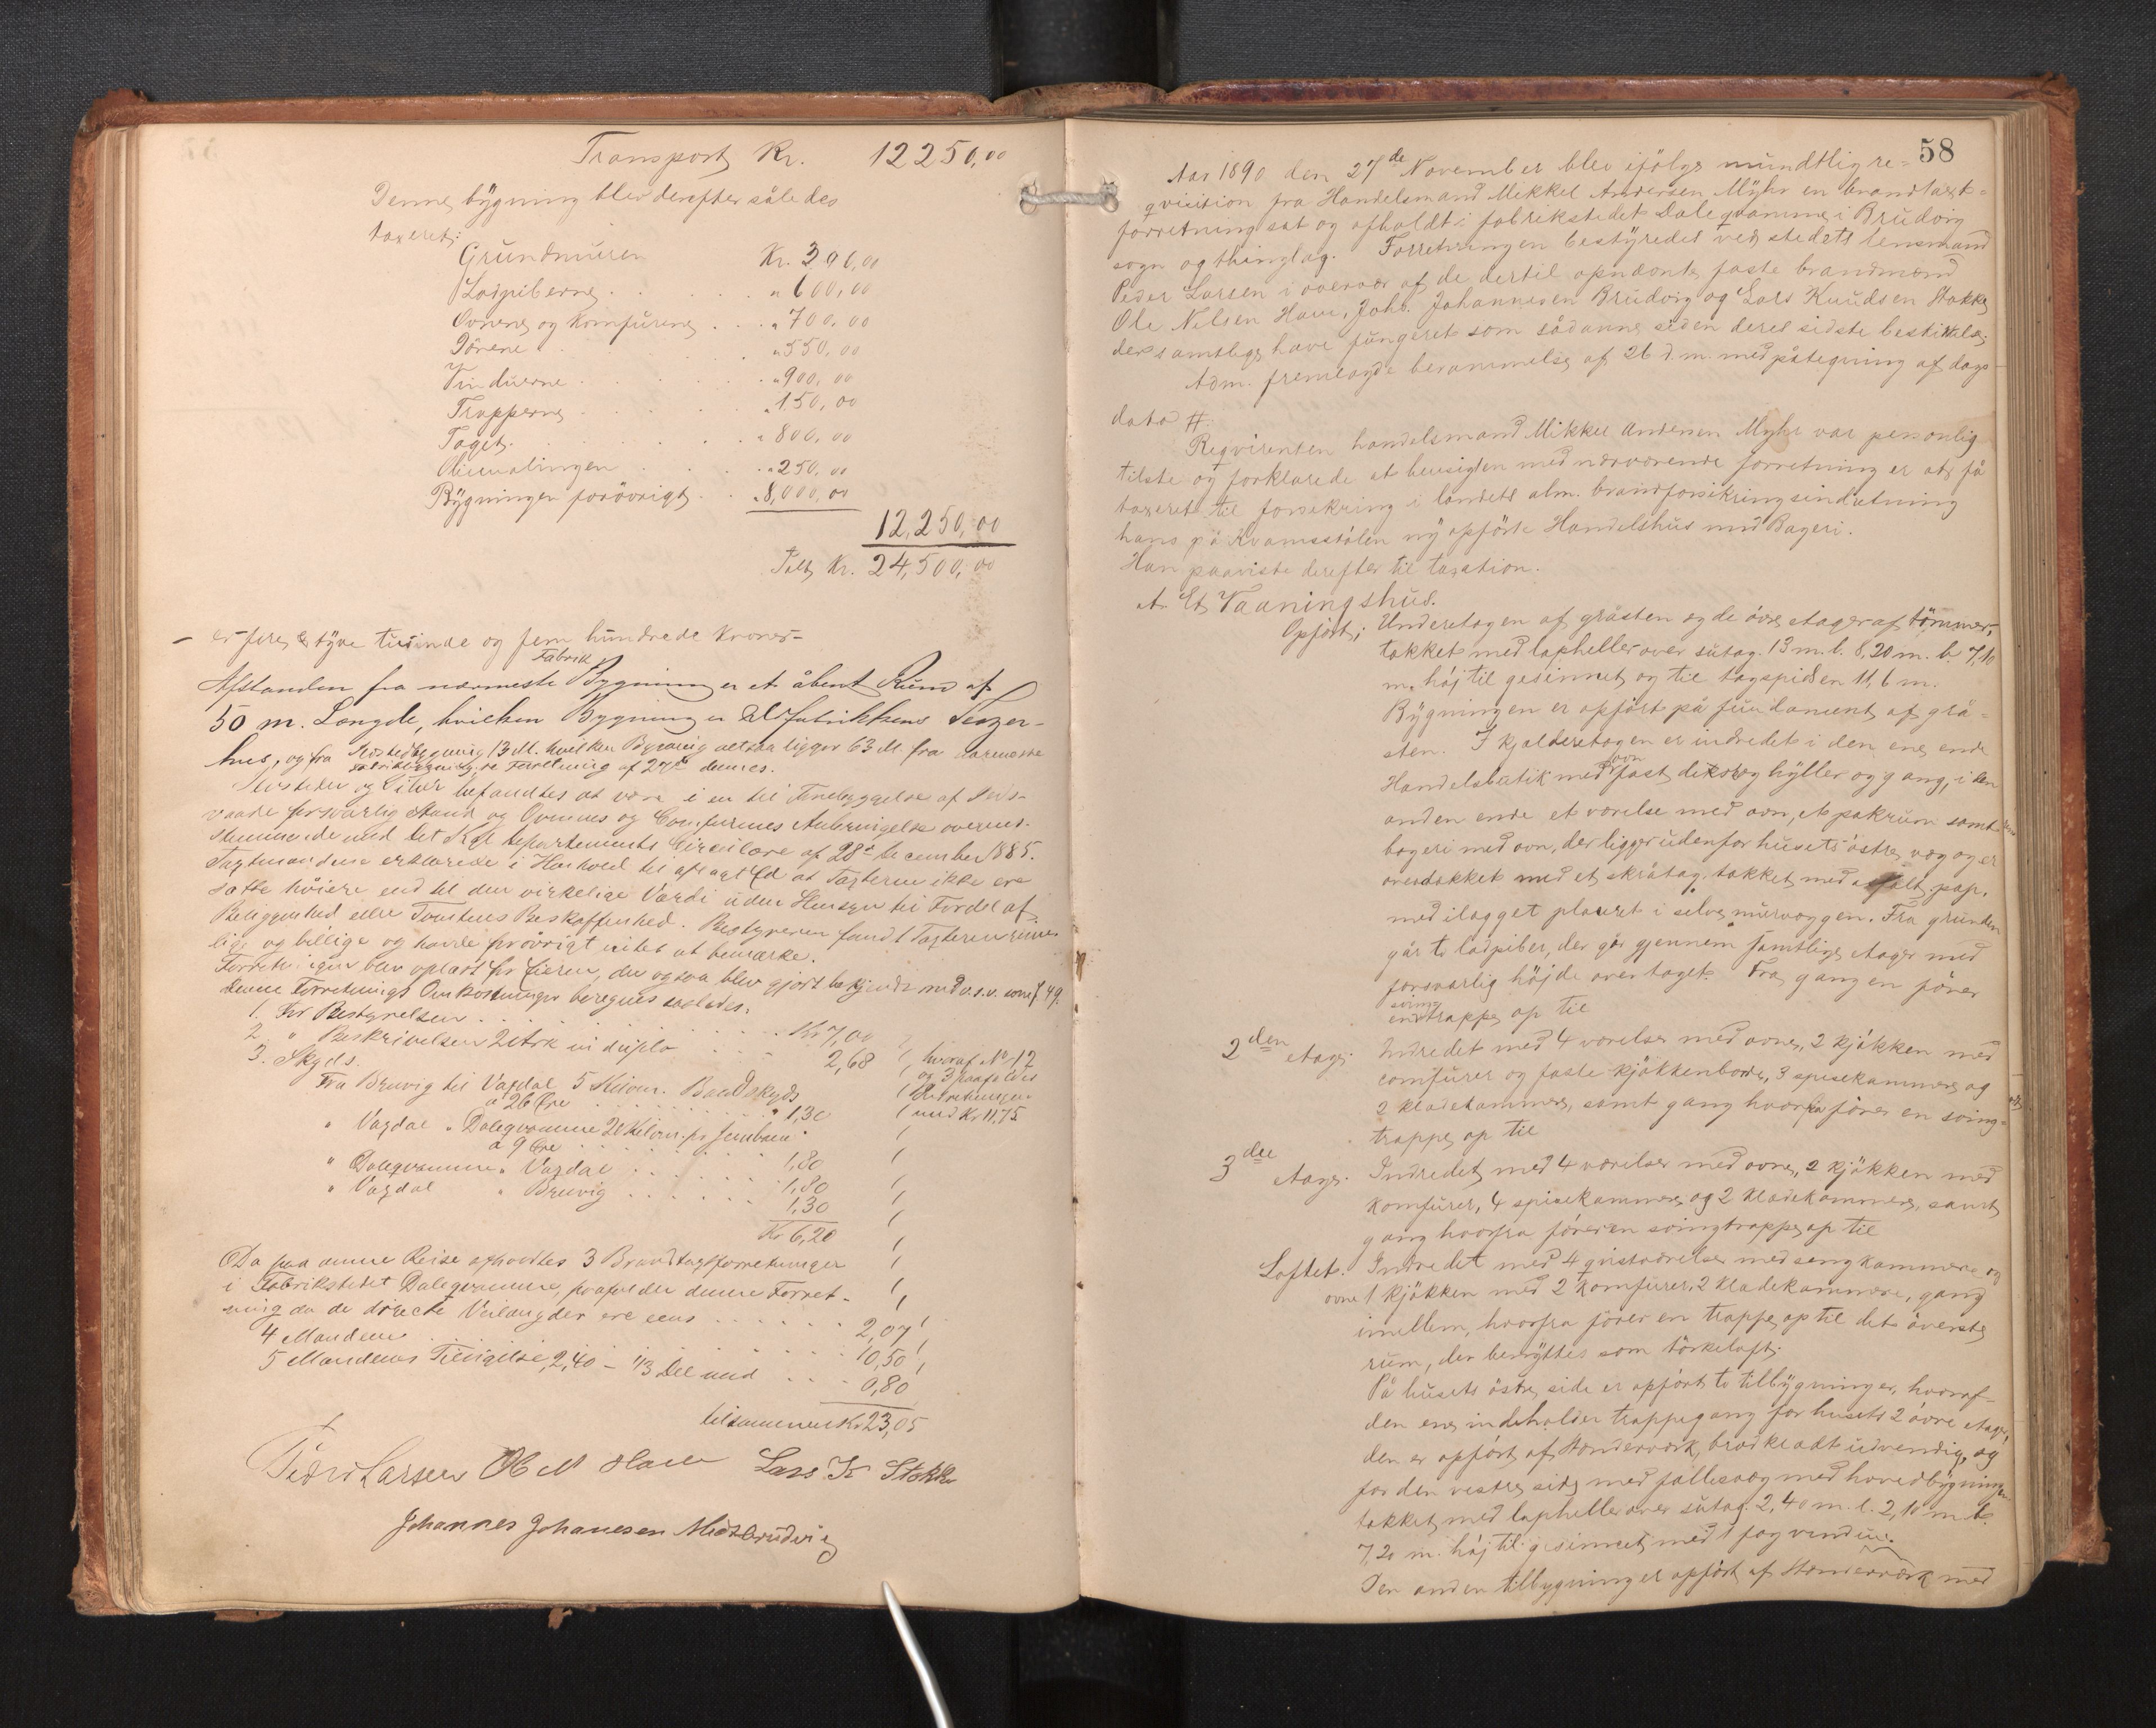 Transport Kr. 12250,00
Denne bygning blev derefter således
taxeret:
Grundmuren Kr. 300,00
Ladpiberne . . . " 600,00
Ovnene og Komfurene . . . " 700,00
Dørene . . . " 550,00
Vinduerne . . . " 900,00
Trapperne . . . " 150,00
Taget . . . " 800,00
Oliemalingen . . . " 250,00
Bygningen forøvrigt . . " 8,000,00
12,250,00
Talt Kr. 24,500,00
– er fire & tyve tusinde og fem hundrede Kroner –
Fabrik
Afstanden fra nærmeste Bygning er et åbent Rum af
50 m. Længde, hvilken Bygning er Uldfabrikkens
hus, og fra 13 M. hvilken Bygning altsaa ligger 63 M. fra nærmeste
Fabrikbygning, se Forretning af 27de dennes.
Ildsteder og befandtes at være i en til Forebyggelse af Ilds-
vaade forsvarlig Stand og Ovnenes og Comfurernes Anbringelse overens-
stemmende med det Kgl. Departements Circulære af 28de December 1885.
Taxtmændene erklærede i Henhold til aflagt Ed at Taxterne ikke ere
satte høiere end til den virkelige Værdi uden Hensyn til Fordel af
Beliggenhed eller Tomtens Beskaffenhed. Bestyreren fandt Taxterne rime-
lige og billige og havde forøvrigt intet at bemærke.
Forretningen blev oplæst for Eieren, der ogsaa blev gjort bekjendt med o.s.v. som f. 49.
Denne Forretnings Omkostninger beregnes saaledes:
1. For Bestyrelsen . . . Kr 7,00
2. " Beskrivelsen 2 Ark in duplo . . . 2,68 hvoraf No 12
3. Skyds. og 3 paafaldes
Fra Bruvig til Vaxdal 5 Kilom. Baadskyds
à 26 Øre . . . " 1,30 med Kr 11,75
" Vaxdal " Dalegvamme 20 Kilom. pr Jernbane
à 9 Øre . . . 1,80
" Dalegvamme " Vaxdal . . . 1,80
" Vaxdal " Bruvig . . . 1,30
Kr 6,20
Da paa denne Reise afholdtes 3 Brandtaxtforretninger
i Fabrikstedet Dalegvamme, paafalder denne Forret-
ning da de directe Veilængder ere eens . . . 2,07
4 Mændene . . . 10,50
5 Mændenes Tilsigelse 2,40 – 1/3 Del med . . . 0,80
tilsammen Kr 23,05
Peder Larsen Ole N Have Lars K Stokke
Johannes Johanesen Midtbrudvig
58
Aar 1890 den 27de November blev ifølge mundtlig re-
qvisition fra Handelsmand Mikkel Andersen Myhr en brandtaxt-
forretning sat og afholdt i fabrikstedet Dalegvamme i Brudvig
sogn og thinglag. Forretningen bestyredes ved stedets lensmand
Peder Larsen i overvær af de dertil opnævnte faste brandmænd
Ole Nilsen Have, Johs. Johannesen Brudvig og Lars Knudsen Stokke
der samtlige have fungeret som sådanne siden deres sidste bestikkelse.
Adm. fremlagde berammelse af 26 d.m. med påtegning af dags
dato #.
Reqvirenten handelsmand Mikkel Andersen Myhr var personlig
tilstede og forklarede at hensigten med nærværende forretning er at få
taxeret til forsikring i landets alm. brandforsikringsindretning
hans på Kvamsstølen ny opførte Handelshus med Bageri.
Han paaviste derefter til taxation.
A. Et Vaaningshus.
Opført; Underetagen af gråsten og de øvre etager af tømmer,
takket med lapheller over sutag. 13 m. l. 8,20 m. b. 7,10
m. høj til gesimset og til tagspidsen 11,6 m.
Bygningen er opført på fundament af grå-
sten. I kjælderetagen er indredet i den ene ende
Handelsbutik med ovn fast disk og hyller og gang, i den
anden ende et værelse med ovn, et pakrum samt
bageri med ovn, der ligger udenfor husets østre væg og er
overdækket med et skråtag, takket med asfalt pap,
med ilagget plasert i selve murvæggen. Fra grunden
går to ladpiber, der går gjennem samtlige etager med
forsvarlig højde over taget. Fra gangen fører
en svingtrappe op til
2den etage. Indredet med 4 værelser med ovne, 2 kjøkken med
comfurer og faste kjøkkenborde, 3 spisekammere og
2 klædekammere, samt gang hvorfra fører en sving-
trappe op til
3die etage. Indredet med 4 værelser med ovne, 2 kjøkken med
Komfurer, 4 spisekammere og 2 klædekammere, samt
gang hvorfra fører en svingtrappe op til
Loftet. Indredet med 4 qvistværelser med sengkammere og
ovne 1 kjøkken med 2 komfurer, 2 klædekammere, gang
imellem, hvorfra fører en trappe op til det øverste
rum, der benyttes som tørkeloft.
På husets østre side er opført to tilbygninger, hvoraf
den ene indeholder trappegang for husets 2 øvre etager,
den er opført af Stænderværk, bordklædt udvendig, og
for den vestre side med fællesvæg med hovedbygningen
takket med lapheller over sutag. 2,40 m. l. 2,10 m. b.
7,20 m. høj til gesimset med 1 fag vinduer.
Den anden tilbygning er opført af Stænderværk med